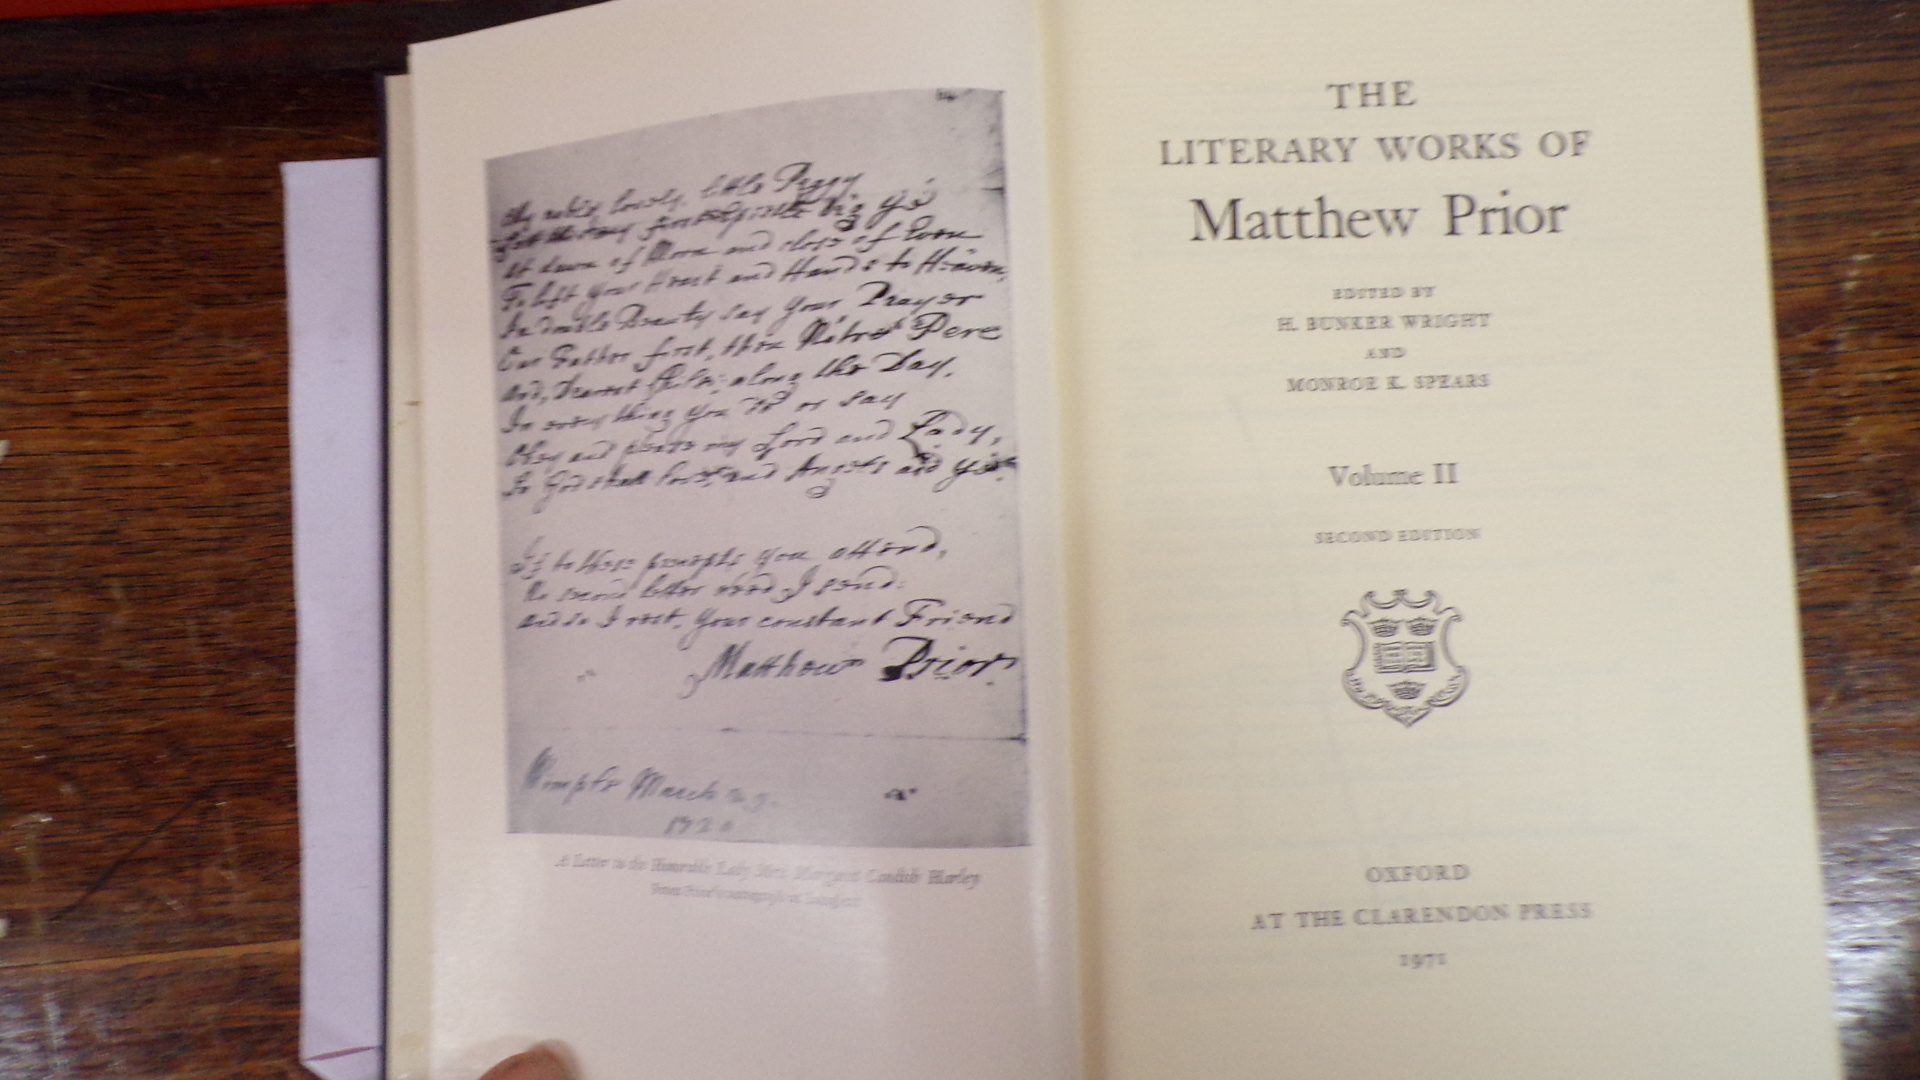 My noble, lovely, little Peggy
at dawn of Morn and close of Even
To lift your Heart and Hands to Heaven,
In double Beauty say your Prayer
Our Father first, then Nôtre Pere
And, Dearest Child, along the Day,
In every thing you do or say
Obey and please my Lord and Lady,
So God shall love, and Angels aid ye.
If to these precepts you attend,
No second letter need I send:
and so I rest, Your constant Friend
Matthew Prior.
March
A Letter to the Honorable Lady Mrs. Margaret Candish Harley
THE
LITERARY WORKS OF
Matthew Prior
EDITED BY
H. BUNKER WRIGHT
AND
MONROE K. SPEARS
Volume II
SECOND EDITION
OXFORD
AT THE CLARENDON PRESS
1971